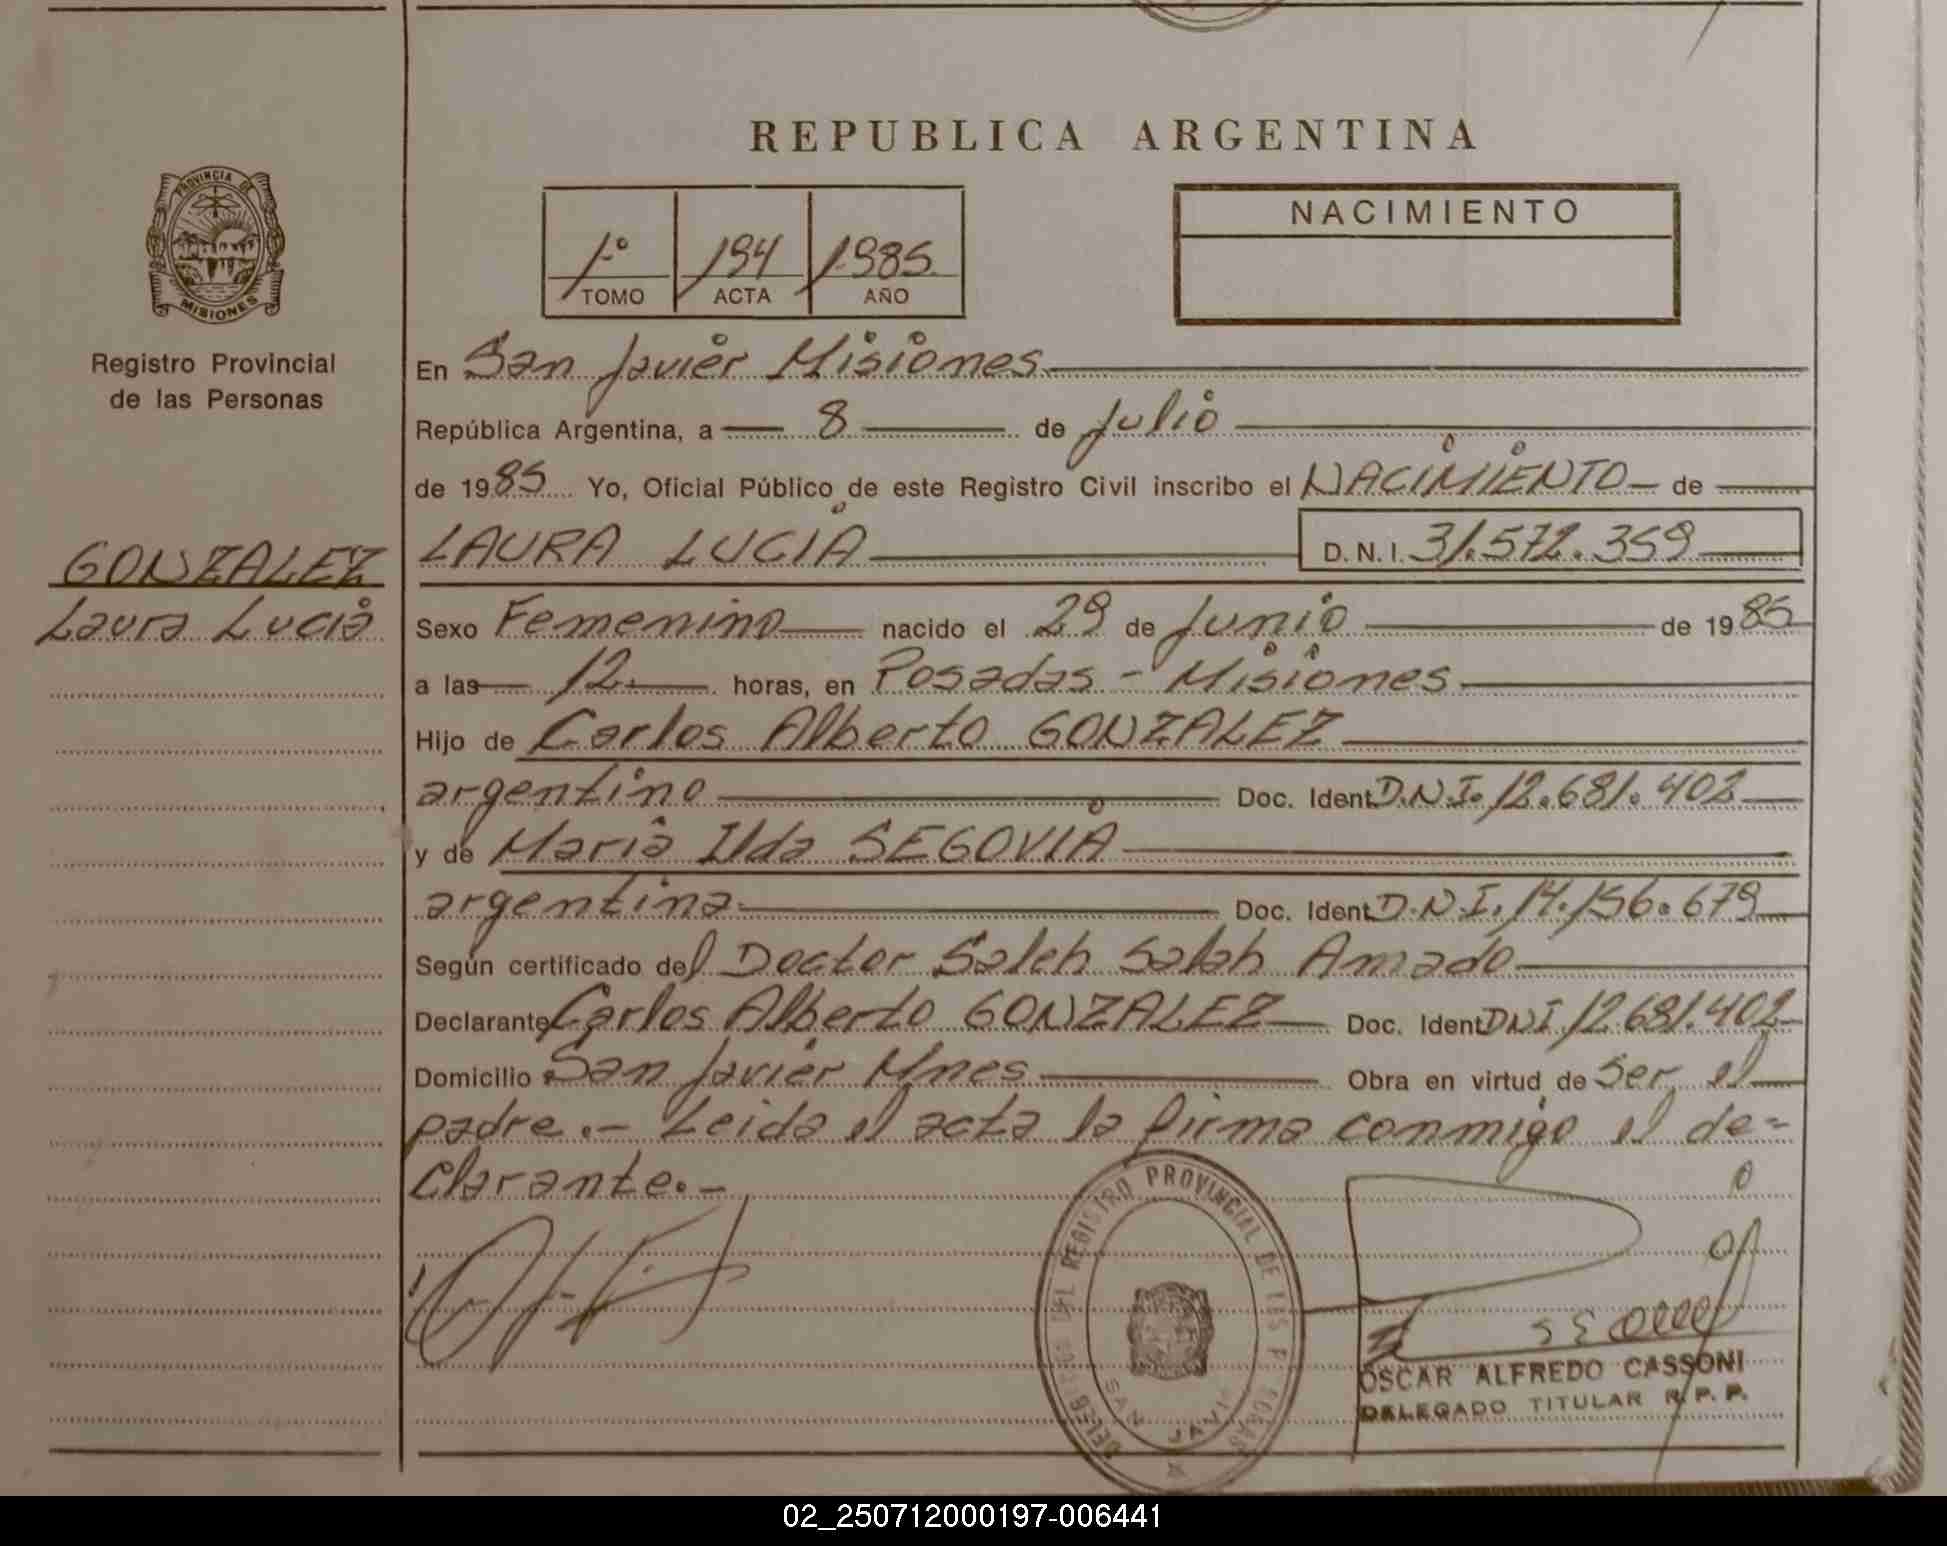 REPUBLICA ARGENTINA
PROVINCIA DE
MISIONES
Registro Provincial
de las Personas
1º 194 1985
TOMO ACTA AÑO
NACIMIENTO
En San Javier Misiones
República Argentina, a 8 de Julio
de 1985 Yo, Oficial Público de este Registro Civil inscribo el NACIMIENTO de
GONZALEZ
Laura Lucia
LAURA LUCIA D.N.I. 31.572.359
Sexo Femenino nacido el 29 de Junio de 1985
a las 12. horas, en Posadas - Misiones
Hijo de Carlos Alberto GONZALEZ
argentino Doc. Ident. D.N.I. 12.681.402
y de Maria Ilda SEGOVIA
argentina Doc. Ident. D.N.I. 14.156.679
Según certificado del Doctor Saleh Salah Amado
Declarante Carlos Alberto GONZALEZ Doc. Ident. DNI 12.681.402
Domicilio San Javier Mnes Obra en virtud de Ser el
padre.- Leida el acta la firma conmigo el de=
clarante.-
DEL REGISTRO PROVINCIAL DE LAS PERSONAS
SAN JAVIER
OSCAR ALFREDO CASSONI
DELEGADO TITULAR R.P.P.
02_250712000197-006441